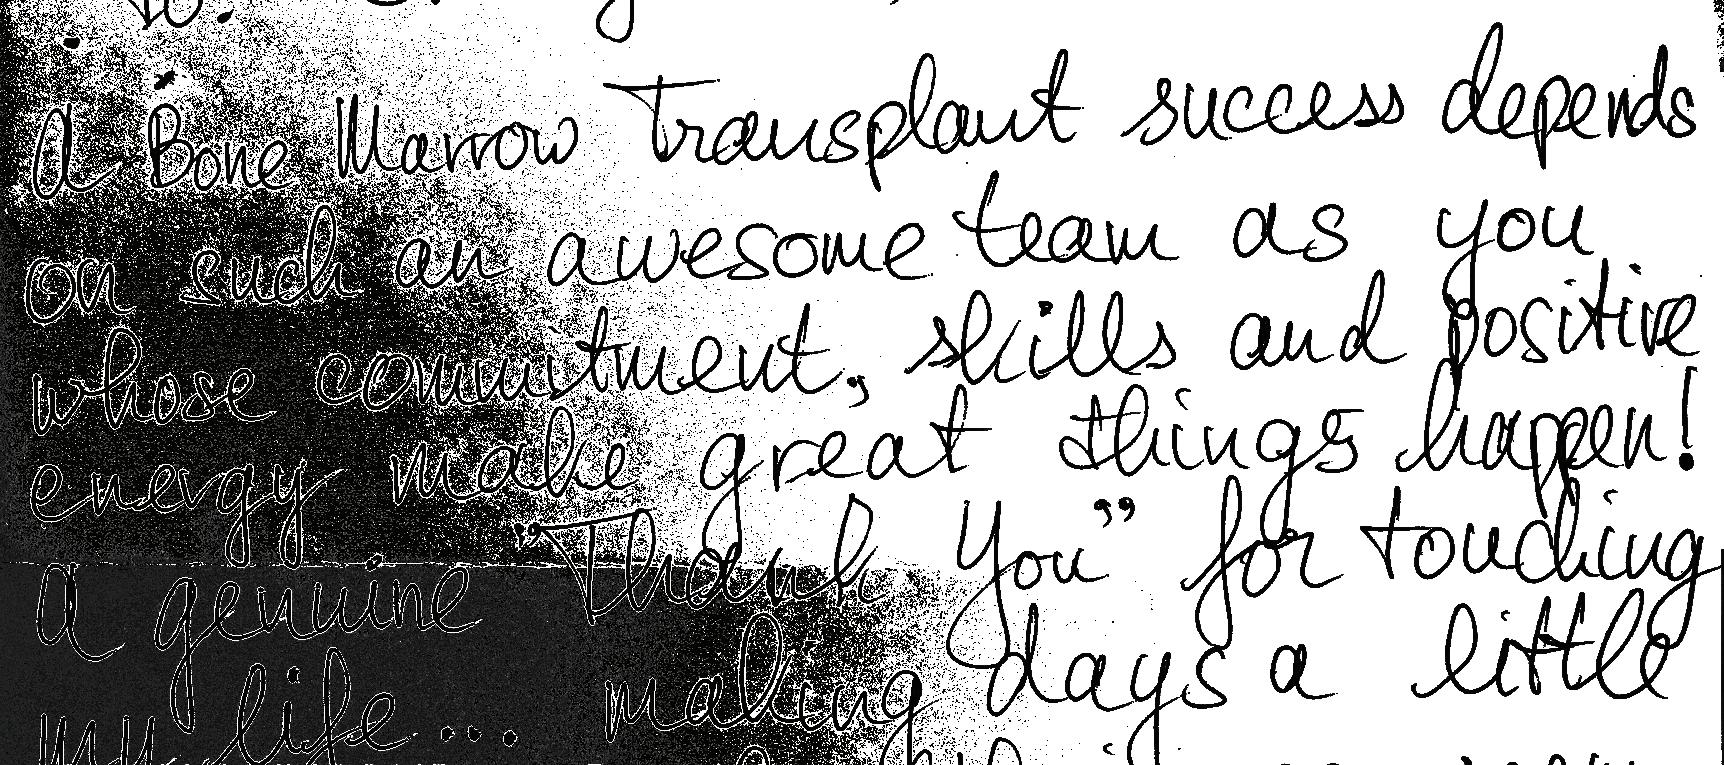 A Bone Marrow Transplant success depends
on such an awesome team as you
whose commitment, skills and positive
energy make great things happen!
a genuine "Thank You" for touching
my life... making days a little